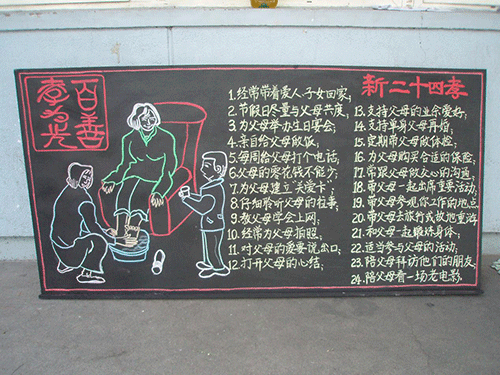 百善
孝为先
新二十四孝
1.经常带着爱人、子女回家;
2.节假日尽量与父母共度;
3.为父母举办生日宴会;
4.亲自给父母做饭;
5.每周给父母打个电话;
6.父母的零花钱不能少;
7.为父母建立“关爱卡”;
8.仔细聆听父母的往事;
9.教父母学会上网;
10.经常为父母拍照;
11.对父母的爱要说出口;
12.打开父母的心结;
13.支持父母的业余爱好;
14.支持单身父母再婚;
15.定期带父母做体检;
16.为父母购买合适的保险;
17.常跟父母做交心的沟通;
18.带父母一起出席重要活动;
19.带父母参观你工作的地点;
20.带父母去旅行或故地重游;
21.和父母一起锻炼身体;
22.适当参与父母的活动;
23.陪父母拜访他们的朋友;
24.陪父母看一场老电影.